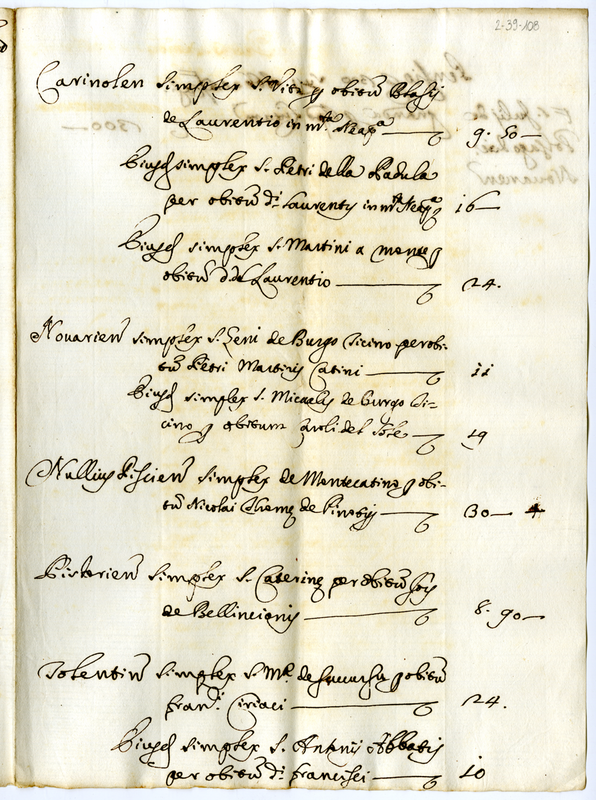 2-39-108
Carinolen simplex S. Viti p obitũ Blasij
de Laurentio in mte Neapa 9. 50
Eiusd simplex S. Petri della Padula
per obitũ di Laurentij in mte Neapa 16
Eiusd simplex S. Martini a monte p
obitũ d. de Laurentio 24.
Nouarien simplex S. Zeni de Burgo Ticino per obi-
tũ Petri Martiris Catini 11
Eiusd simplex S. Micaelis de Burgo Ti-
cino p obitum Caroli del 19
Nullius Piscien simplex de Montecatino p obi-
tũ Nicolai de 30
Pistorien simplex S. Caterine per obitũ Jois
de Bellincionis 8. 90
Tolentin simplex S. Me. de p obitũ
franci. Ciriaci 24.
Eiusd simplex S. Antonij Abbatis
per obitũ di. francisci 10